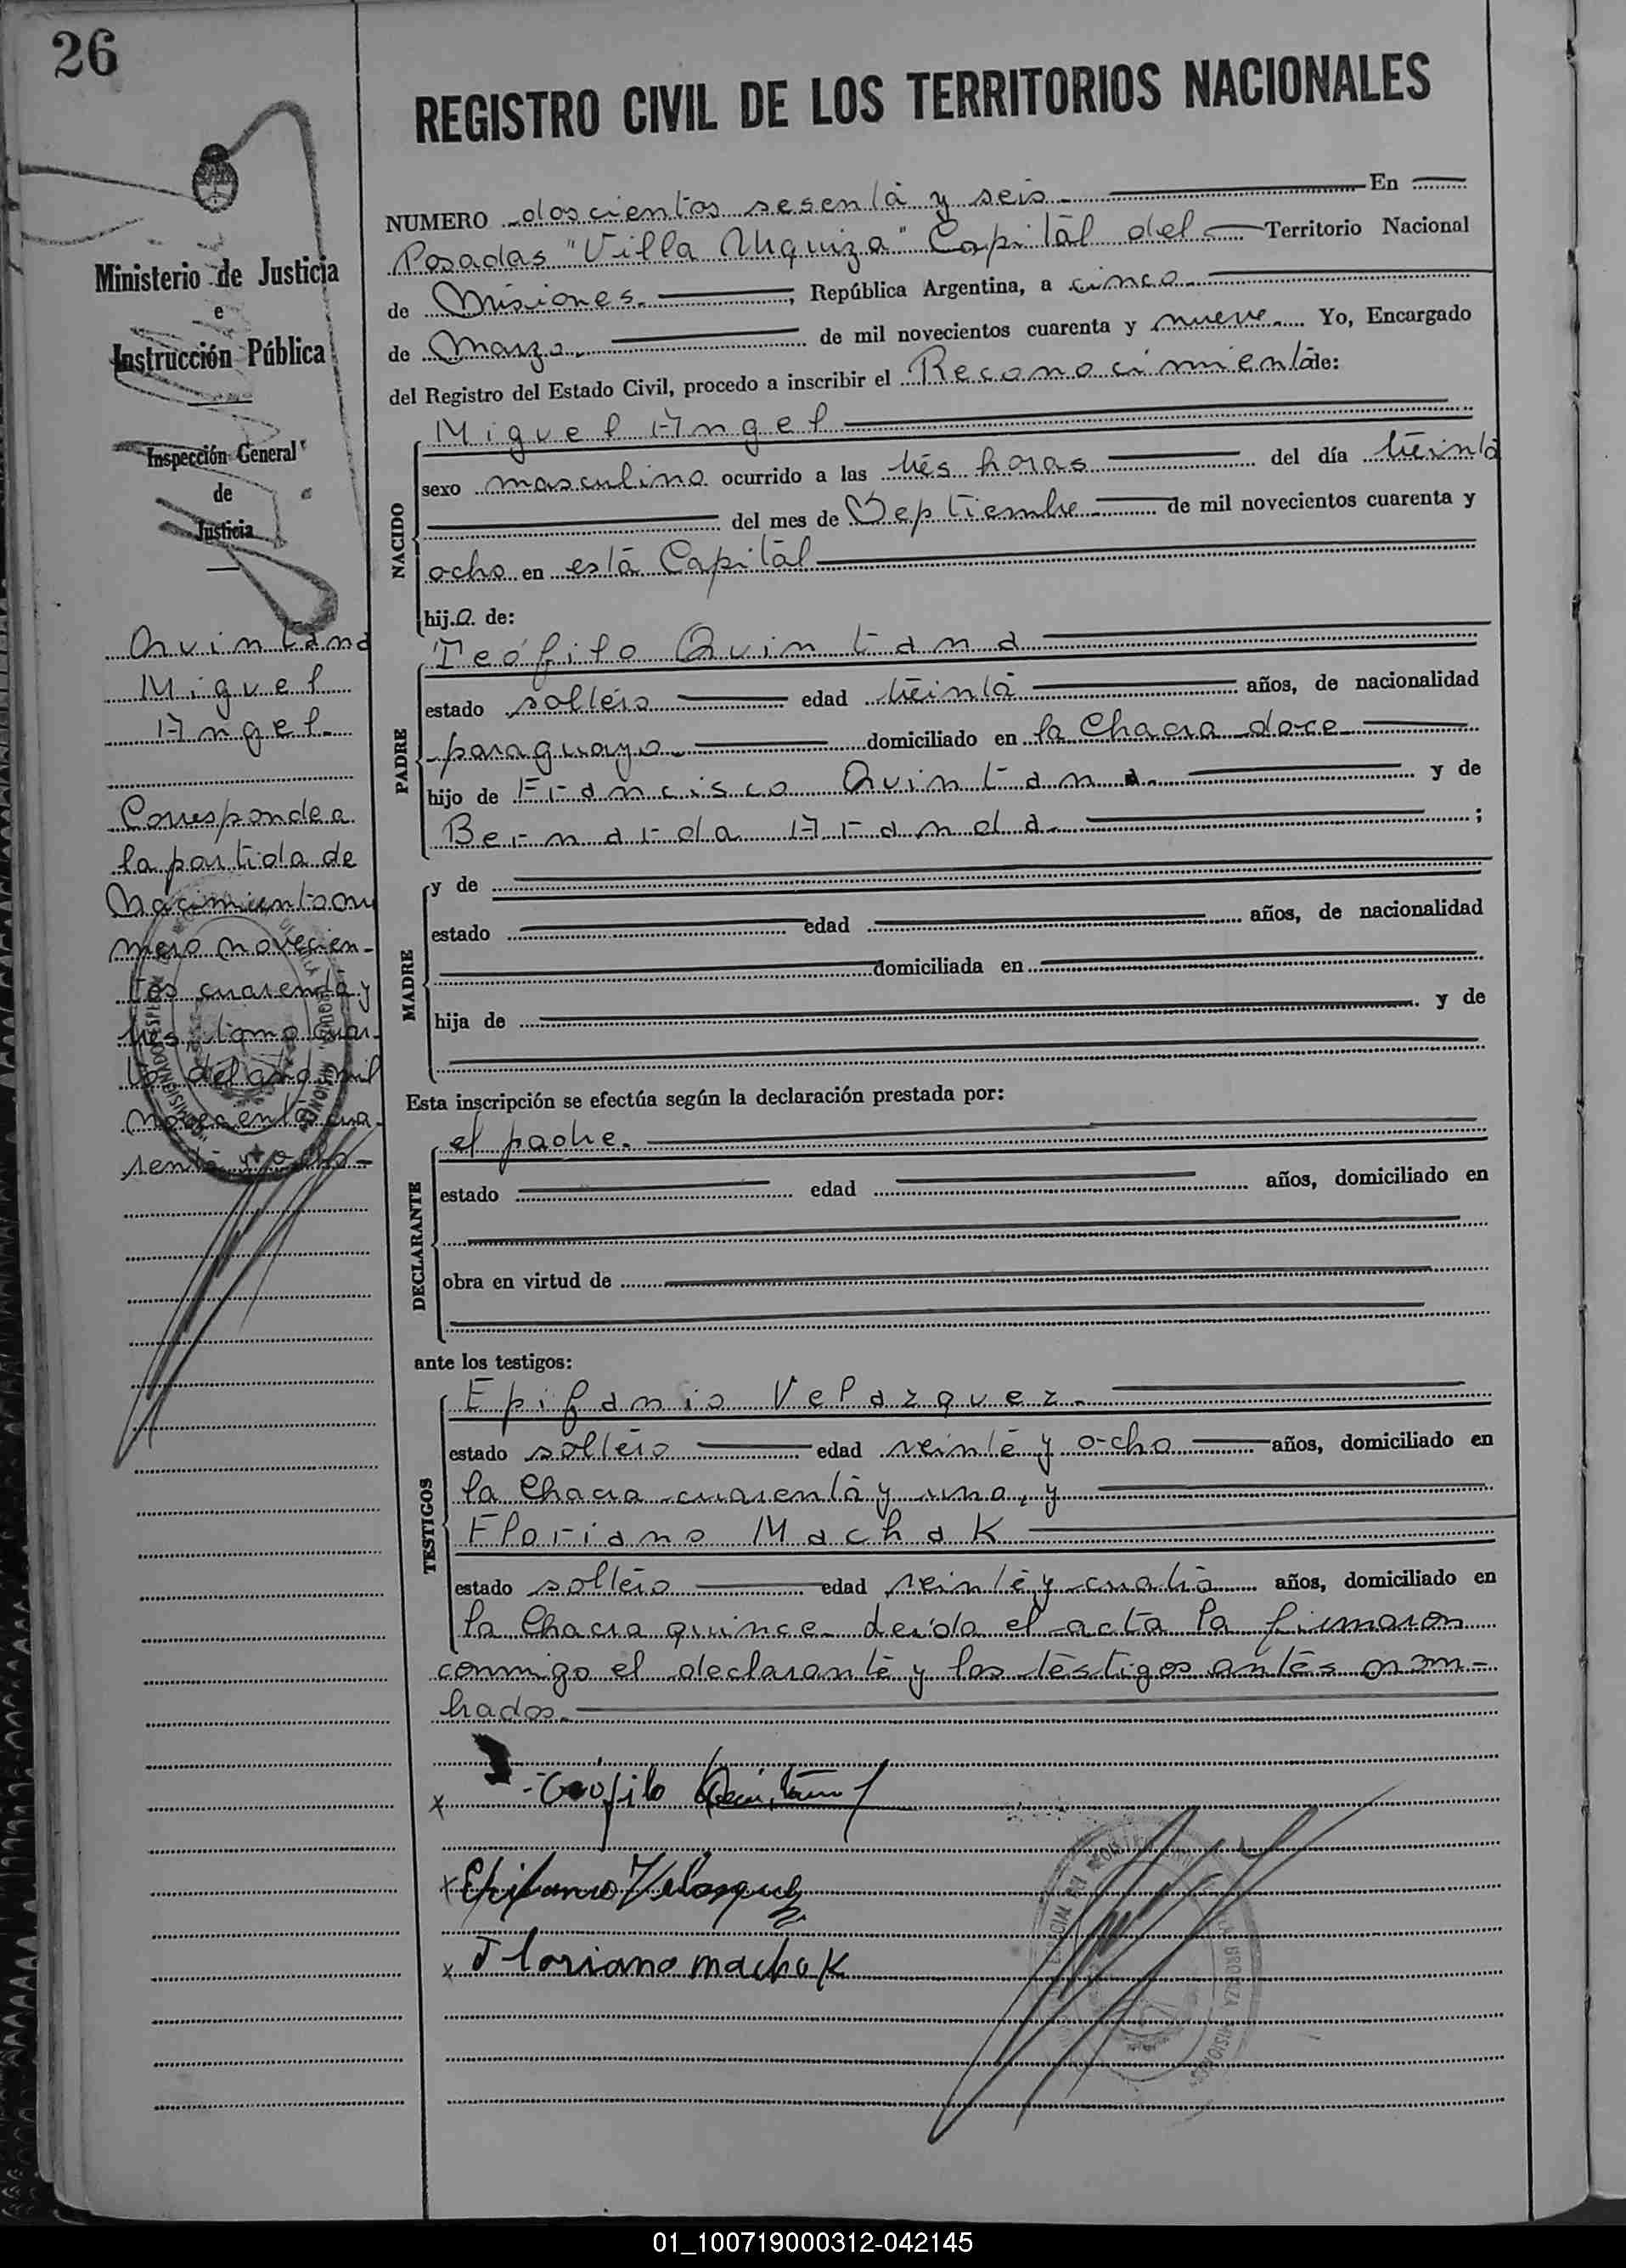 26
REGISTRO CIVIL DE LOS TERRITORIOS NACIONALES
Ministerio de Justicia
e
Instrucción Pública
Inspección General
de
Justicia
Quintana
Miguel
Angel.
Corresponde a
la partida de
Nacimiento nu
mero novecien-
tos cuarenta y
tres, tomo cuar-
to del año mil
novecento cua-
renta y ocho-
NUMERO doscientos sesenta y seis. En
Posadas "Villa Urquiza" Capital del Territorio Nacional
de Misiones. , República Argentina, a cinco.
de Marzo. de mil novecientos cuarenta y nueve. Yo, Encargado
del Registro del Estado Civil, procedo a inscribir el Reconocimiento de:
NACIDO
Miguel Angel
sexo masculino ocurrido a las tres horas del día treinta
del mes de Septiembre de mil novecientos cuarenta y
ocho en esta Capital
hijo de:
PADRE
Teófilo Quintana
estado soltero edad treinta años, de nacionalidad
paraguayo. domiciliado en la Chacra doce
hijo de Francisco Quintana. y de
Bernarda Aranda. ;
MADRE
y de
estado edad años, de nacionalidad
domiciliada en
hija de y de
Esta inscripción se efectúa según la declaración prestada por:
DECLARANTE
el padre.
estado edad años, domiciliado en
obra en virtud de
ante los testigos:
TESTIGOS
Epifanio Velazquez.
estado soltero edad veinte y ocho años, domiciliado en
la Chacra cuarenta y una, y
Floriano Machak
estado soltero edad veinte y cuatro años, domiciliado en
la Chacra quince. leída el acta la firmaron
conmigo el declarante y los testigos antes nom-
brados.
x Teófilo Quintana
x Epifanio Velasquez
x Floriano machak
01_100719000312-042145